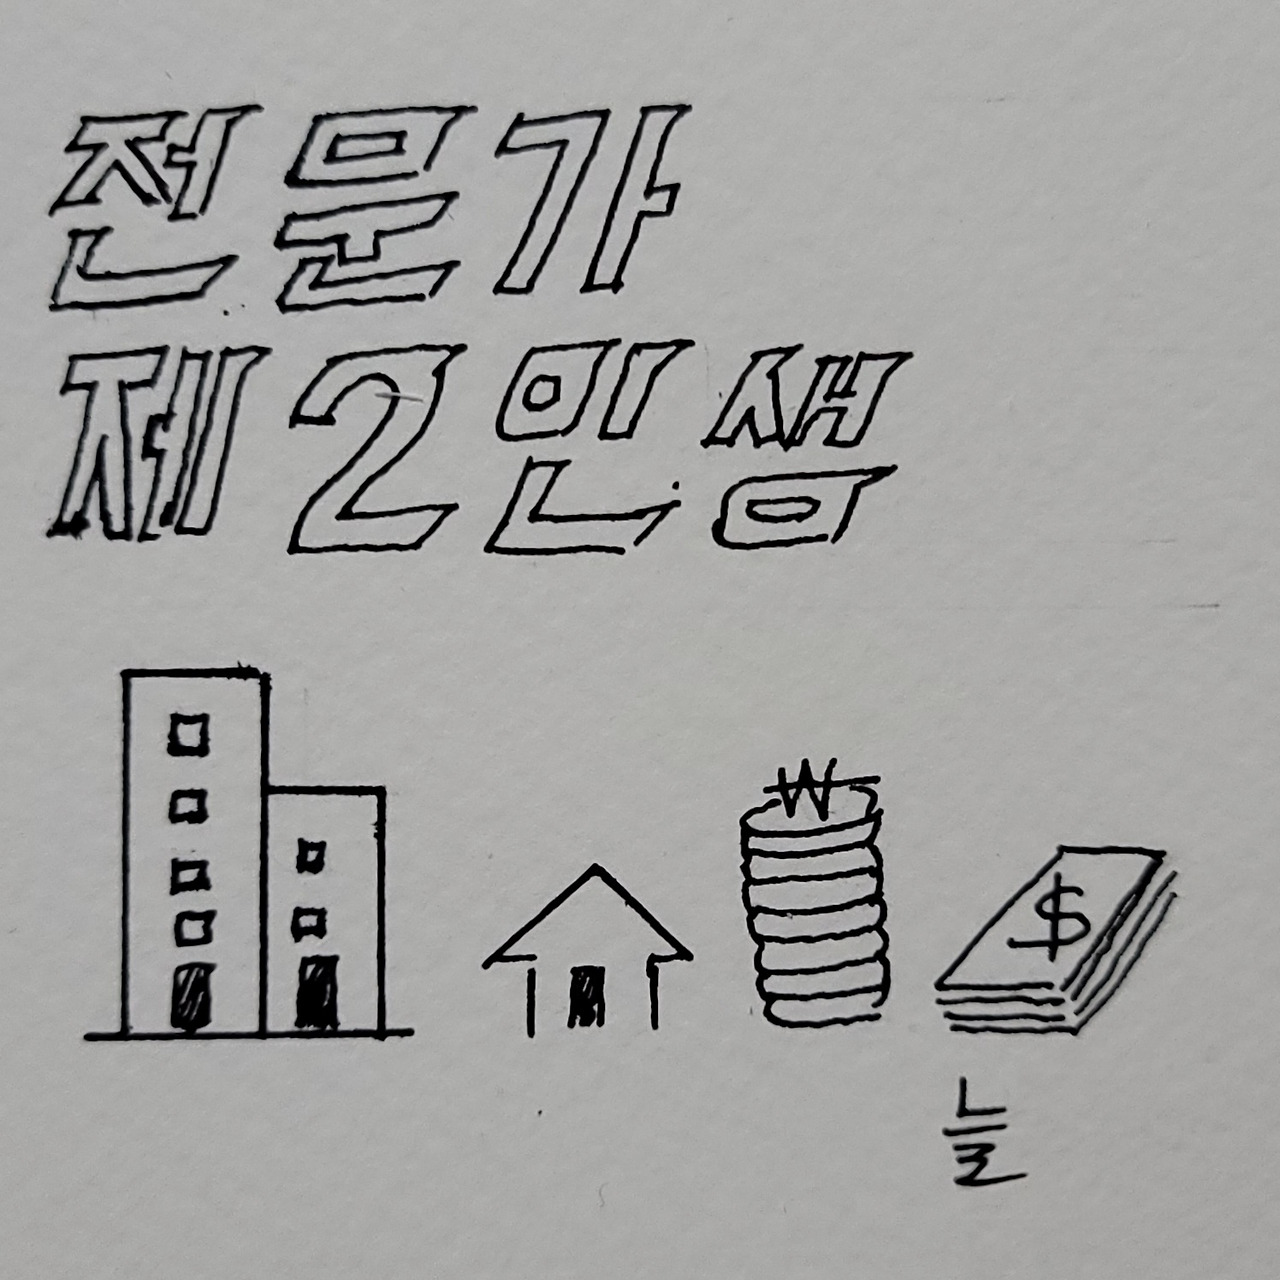 전문가
제2인생
₩
$
늘